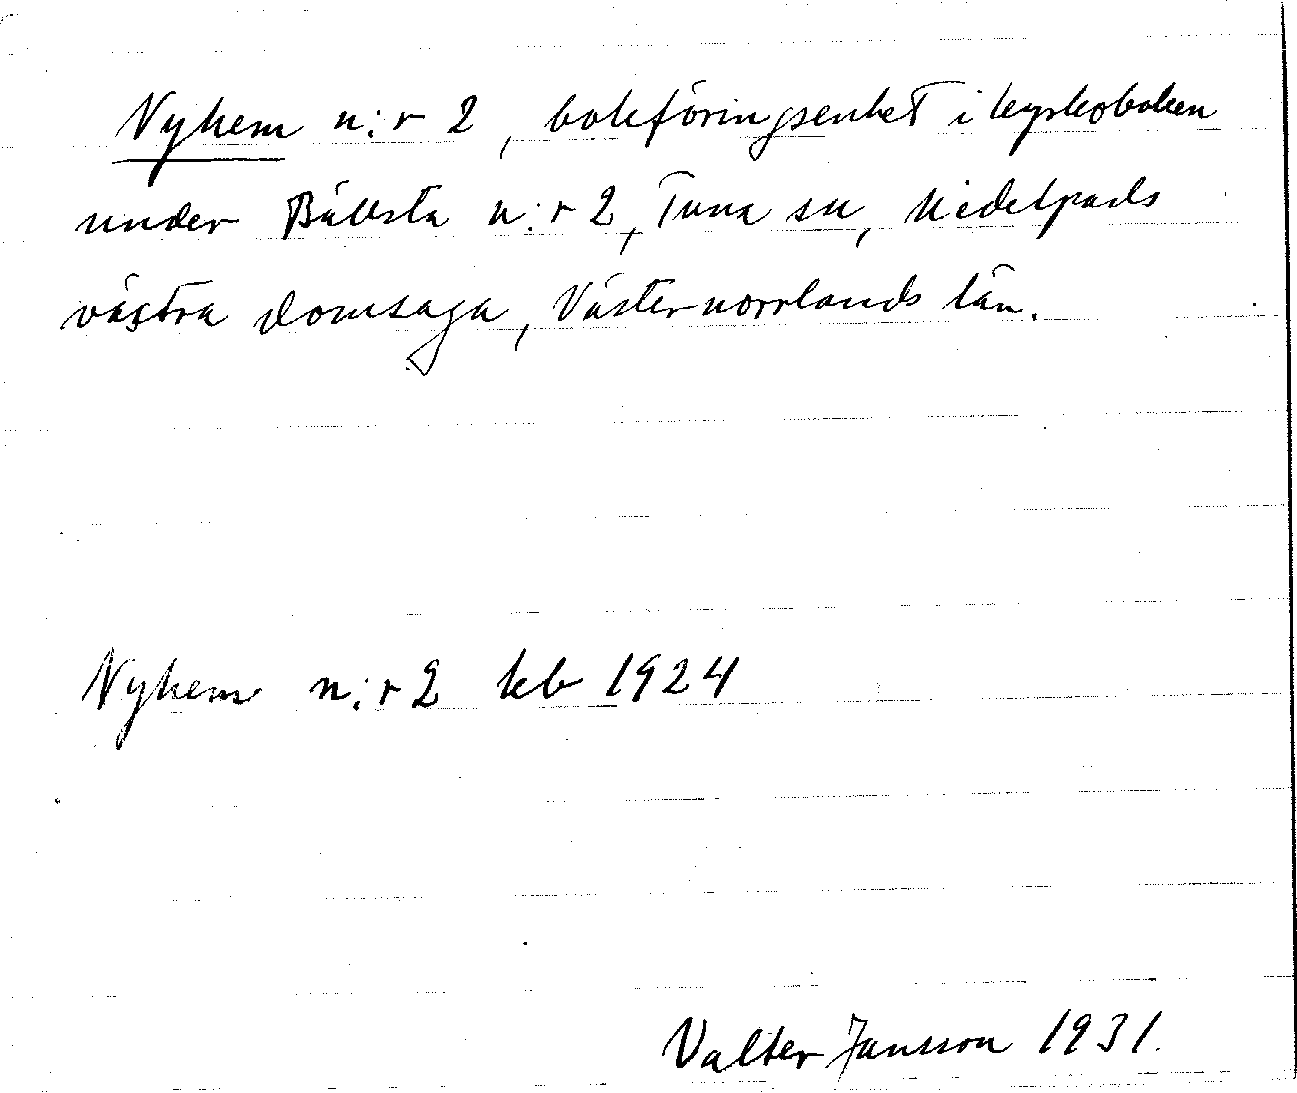 Nyhem n:r 2, bokföringsenhet i kyrkoboken
under Bällsta n:r 2, Tuna sn, Medelpads
västra domsaga, Västernorrlands län.
Nyhem n:r 2 kb 1924
Valter Jansson 1931.